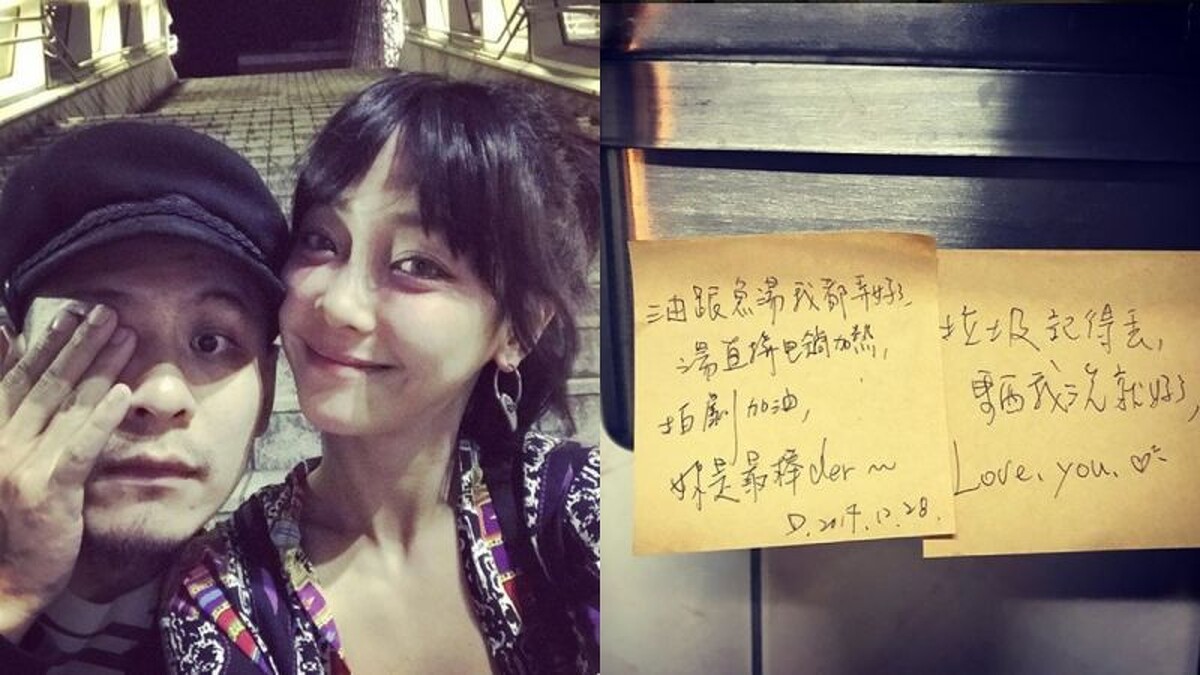 油跟魚湯我都弄好了,
湯直接電鍋加熱,
拍劇加油,
妳是最棒der~
D. 2014.12.28.
垃圾記得丟,
東西我洗就好了,
Love, you. ♡